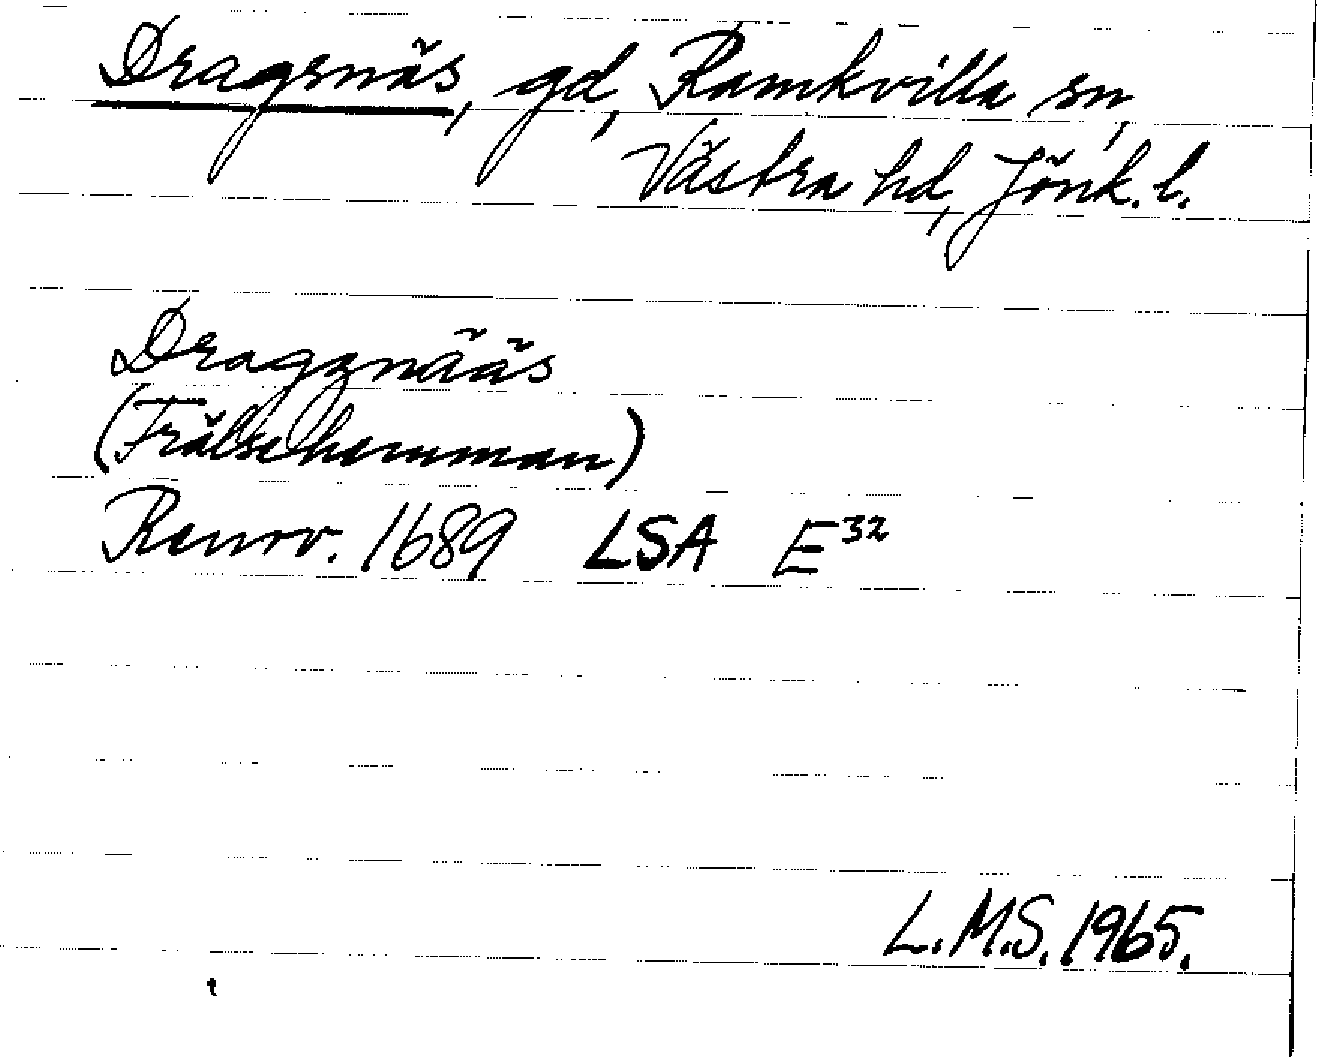 Dragsnäs, gd, Ramkvilla sn,
Västra hd, Jönk. l.
Dragznääs
(Frälsehemman)
Renov. 1689 LSA E32
L.M.S. 1965.